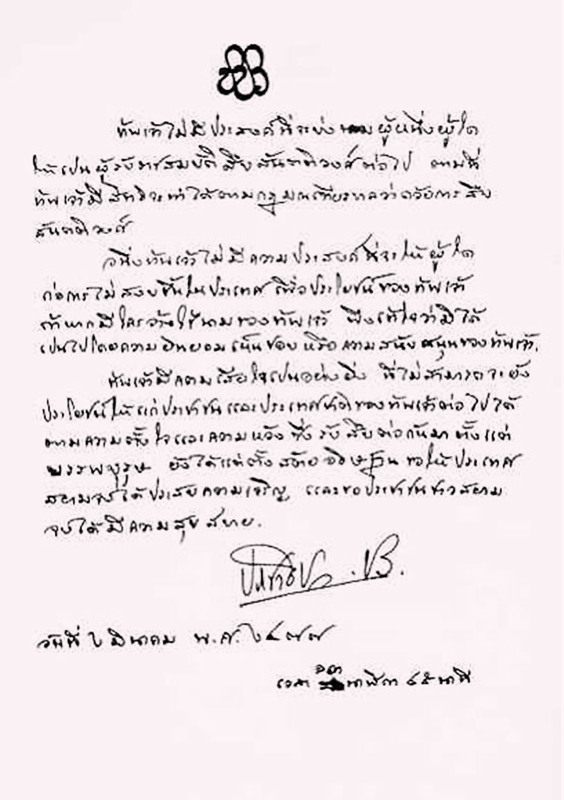 ข้าพเจ้าไม่มีประสงค์ที่จะบ่งนามผู้หนึ่งผู้ใด
ให้เป็นผู้รับราชสมบัติสืบสันตติวงศ์ต่อไป ตามที่
ข้าพเจ้ามีสิทธิจะทำได้ตามกฎมณเฑียรบาลว่าด้วยการสืบ
สันตติวงศ์
อนึ่งข้าพเจ้าไม่มีความประสงค์ที่จะให้ผู้ใด
ก่อการไม่สงบขึ้นในประเทศ เพื่อประโยชน์ของข้าพเจ้า
ถ้าหากมีใครอ้างใช้นามของข้าพเจ้า พึงเข้าใจว่ามิได้
เป็นไปโดยความยินยอมเห็นชอบ หรือความสนับสนุนของข้าพเจ้า.
ข้าพเจ้ามีความเสียใจเป็นอย่างยิ่ง ที่ไม่สามารถจะยัง
ประโยชน์ให้แก่ประชาชนและประเทศชาติของข้าพเจ้าต่อไปได้
ตามความตั้งใจและความหวัง ซึ่งรับสืบต่อกันมาตั้งแต่
บรรพบุรุษ ยังได้แต่ตั้งสัตยอธิษฐานขอให้ประเทศ
สยามจงได้ประสบความเจริญ และขอประชาชนชาวสยาม
จงได้มีความสุขสบาย.
ประชาธิปก ปร.
วันที่ ๒ มีนาคม พ.ศ. ๒๔๗๗
เวลา ๑๓ นาฬิกา ๔๕ นาที